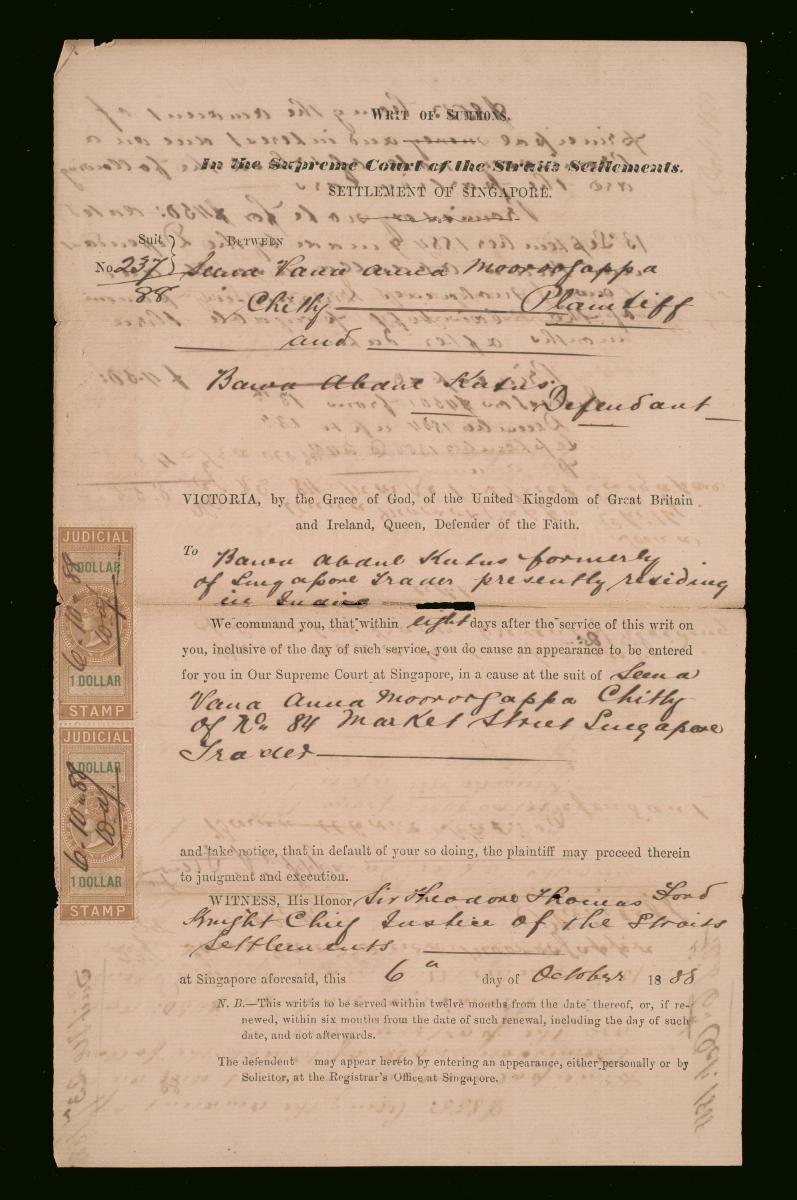 WRIT OF SUMMONS.
In the Supreme Court of the Straits Settlements.
SETTLEMENT OF SINGAPORE.
Suit
BETWEEN
No. 237 Seena Vana Anna Mooroogappa
88
Chitty Plaintiff
and
Bawa Abdul Kutus
Defendant
VICTORIA, by the Grace of God, of the United Kingdom of Great Britain
and Ireland, Queen, Defender of the Faith.
To Bawa Abdul Kutus formerly
of Singapore Trader presently residing
in India
We command you, that within eight days after the service of this writ on
you, inclusive of the day of such service, you do cause an appearance to be entered
for you in Our Supreme Court at Singapore, in a cause at the suit of Seena
Vana Anna Mooroogappa Chitty
of No. 84 Market Street Singapore
Trader
and take notice, that in default of your so doing, the plaintiff may proceed therein
to judgment and execution.
WITNESS, His Honor Sir Theodore Thomas Ford
Knight Chief Justice of the Straits
Settlements
at Singapore aforesaid, this 6th day of October 1888
N. B.—This writ is to be served within twelve months from the date thereof, or, if re-
newed, within six months from the date of such renewal, including the day of such
date, and not afterwards.
The defendant may appear hereto by entering an appearance, either personally or by
Solicitor, at the Registrar's Office at Singapore.
JUDICIAL
1 DOLLAR
6-10-88
1 DOLLAR
STAMP
JUDICIAL
1 DOLLAR
6-10-88
1 DOLLAR
STAMP